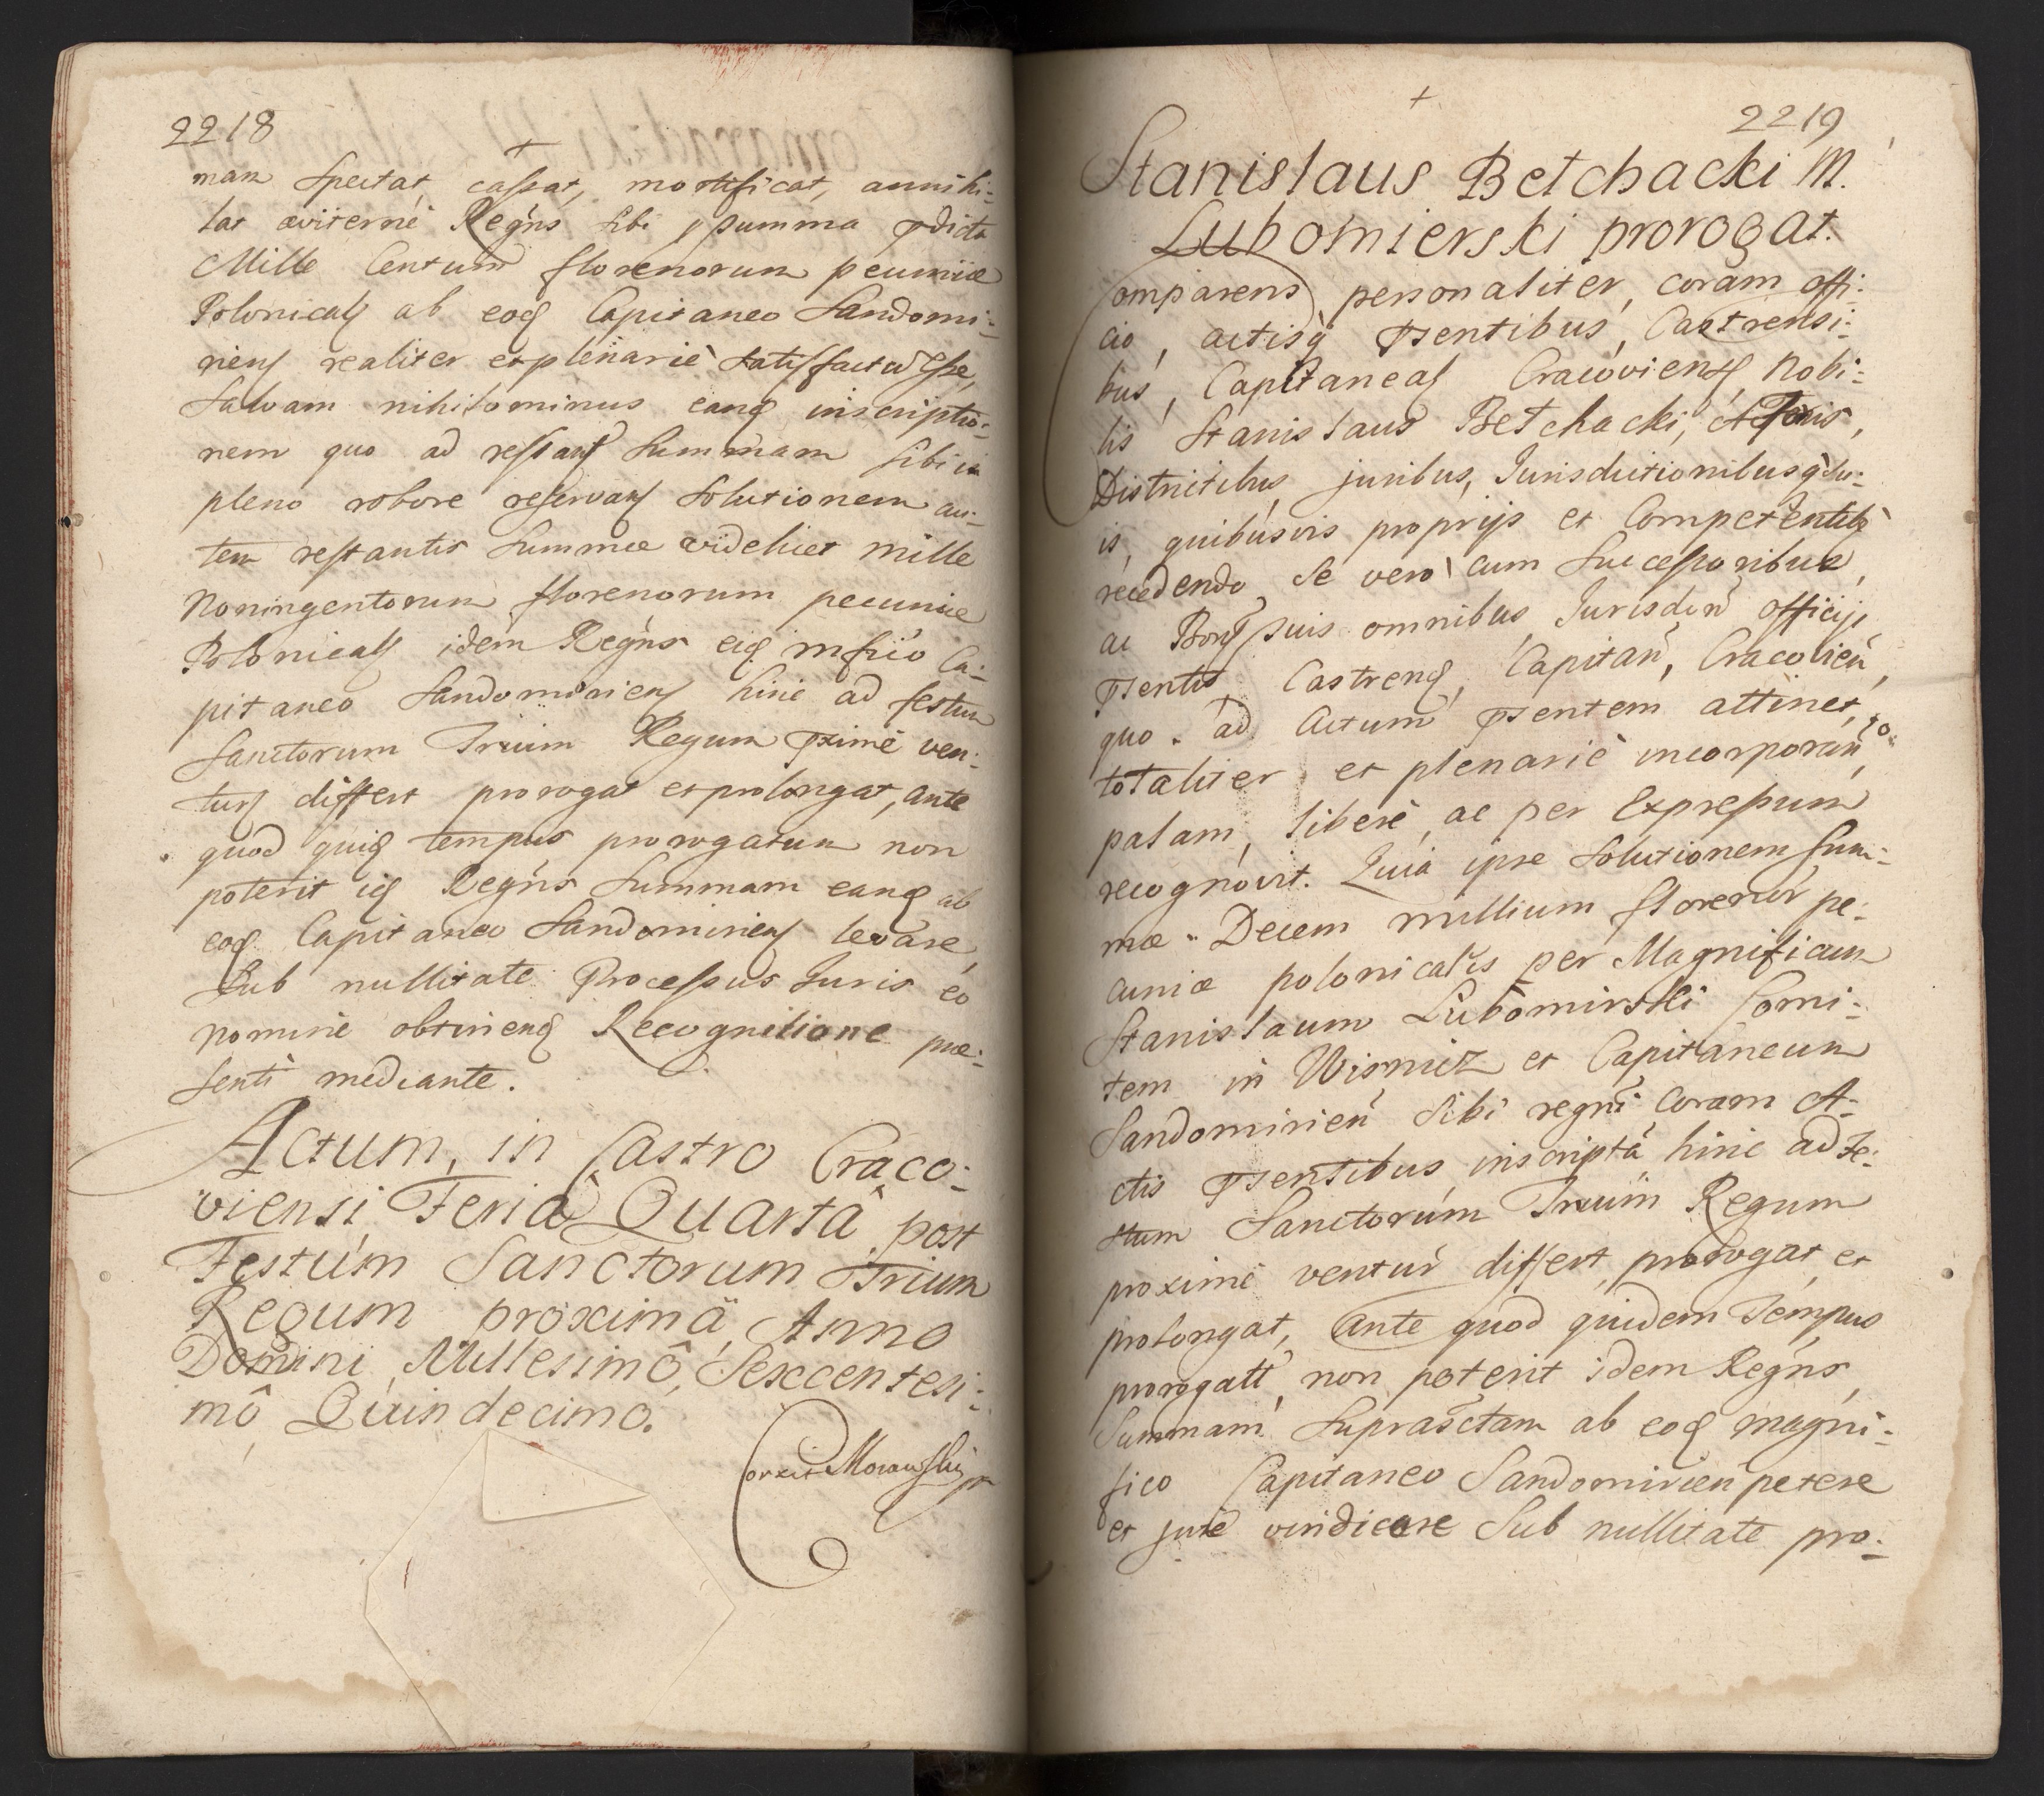 2218
+
mam Spectat, cassat, mortificat, annihi-
lat æviternè Regns sibi p summa pdicta
Mille Centum florenorum pecuniæ
Polonicalis ab eoq Capitaneo Sandomi-
riens realiter et plenariè satisfactũ esse,
Salvam nihilominus eanq inscriptio-
nem quo ad restant Summam sibi in
pleno robore reservans Solutionem au-
tem restantis Summæ videlicet mille
Noningentorum florenorum pecuniæ
Polonicals idem Regns eiq mfico Ca-
pitaneo Sandomiriens hinc ad festum
Sanctorum Trium Regum pximè ven-
turs differt prorogat et prolongat, ante
quod quiq tempus prorogatum non
poterit iq Regns Summam eanq ab
eoq Capitaneo Sandomiriens levare,
Sub nullitate Processus Juris eo
nomine obtinenq Recognitione præ-
senti mediante.
Actum, in Castro Craco-
viensi Feriâ Quartâ post
Festúm Sanctorum Trium
Regum proximâ, Anno
Domini Millesimô, Sexcentesi-
mô Quindecimo.
Corexit Morawski
+
2219
Stanislaus Betchacki M.
Lubomierski prorogat.
Comparens personaliter, coram offi-
cio, actisq psentibus, Castrensi-
bus, Capitaneals Cracoviens, Nobi-
lis Stanislaus Betchacki,
Districtibus, juribus, Jurisdictionibusq su-
is, quibusvis proprijs et Competentib
recedendo, Se verò cum Successoribus,
ac Bons suis omnibus Jurisdictn officij
psentis, Castrens, Capitan, Cracovien,
quo ad Actum psentem attinet, to-
totaliter et plenariè incorporan,
palam, liberè, ac per Expressum
recognóvit. Quia ipse Solutionem Sum-
mæ Decem millium florenor pe-
cuniæ polonicalis per Magnificum
Stanislaum Lubomirski Comi-
tem in Wisnicz et Capitaneum
Sandomirien Sibi regnti Coram A-
ctis psentibus inscripta, hinc ad Fe-
stum Sanctorúm Trium Regum
proximè ventur differt, prorogat, et
prolongat, Ante quod quidem Tempus
prorogatt, non poterit idem Regns,
Summam Suprasctam ab eoq Magni-
fico Capitaneo Sandomirien petere
et jure vindicare Sub nullitate pro-